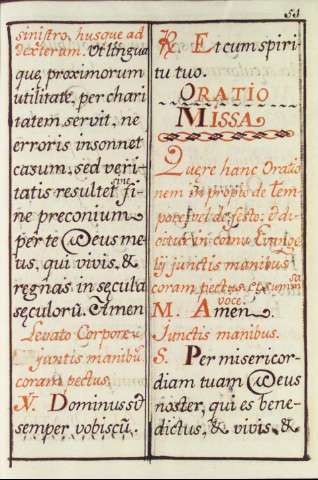 53
sinistro, husque ad
dexterum. Ut lingua
que, proximorum
utilitate, per chari
tatem servit, ne
erroris insonnet
casum, sed veri-
tatis resultet sine fi-
ne preconium
per te Deus me-
us, qui vivis, &
regnas in sęcula
sęculorũ. Amen
Levato Corpore
juntis manibũ
coram pectus.
V. Dominus
semper vobiscũ.
R. Et cum spiri
tu tuo.
ORATIO
MISSA
Quere hanc Oratio
nem in proprio de tem
pore, vel de festo:
in cornu Evange
lij junctis manibus
coram pectus,
voce.
M. Amen.
Junctis manibus.
S. Per misericor-
diam tuam Deus
noster, qui es bene-
dictus, & vivis, &